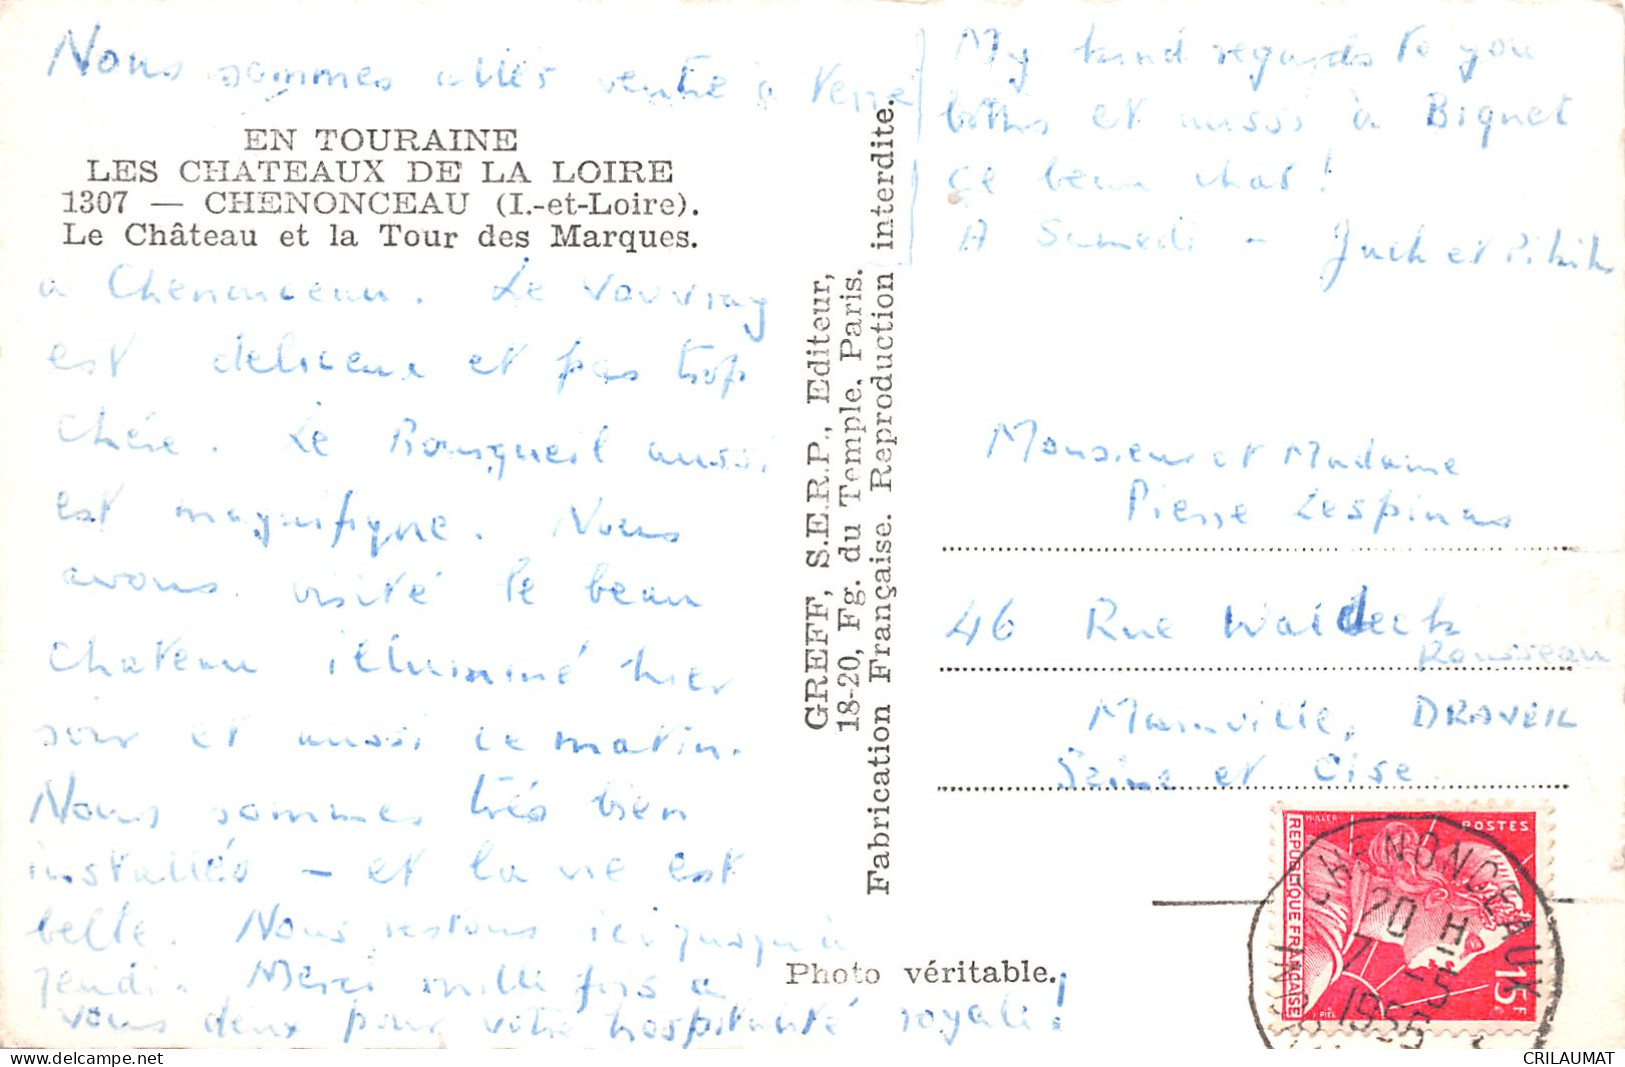 Nous sommes allés ventre à terre
EN TOURAINE
LES CHATEAUX DE LA LOIRE
1307 — CHENONCEAU (I.-et-Loire).
Le Château et la Tour des Marques.
a Chenonceau. Le Vouvray
est delicieux et pas trop
chère. Le Bourgueil aussi
est magnifique. Nous
avons visité le beau
chateau illuminé hier
soir et aussi ce matin.
Nous sommes très bien
installés – et la vie est
belle. Nous restons ici jusqu'à
jeudi. Merci mille fois a
vous deux pour votre hospitalité royale!
GREFF, S.E.R.P., Editeur,
18-20, Fg. du Temple, Paris.
Fabrication Française. Reproduction interdite.
Photo véritable.
My kind regards to you
both et aussi à Biquet
ce beau chat!
A Samedi – Jack et
Monsieur et Madame
Pierre Lespinas
46 Rue Waldeck
Rousseau
Mainville, DRAVEIL
Seine et Oise
MULLER
POSTES
REPUBLIQUE FRANÇAISE
15F
PIEL
CHENONCEAUX
20 H
7 -5
1955
CRILAUMAT